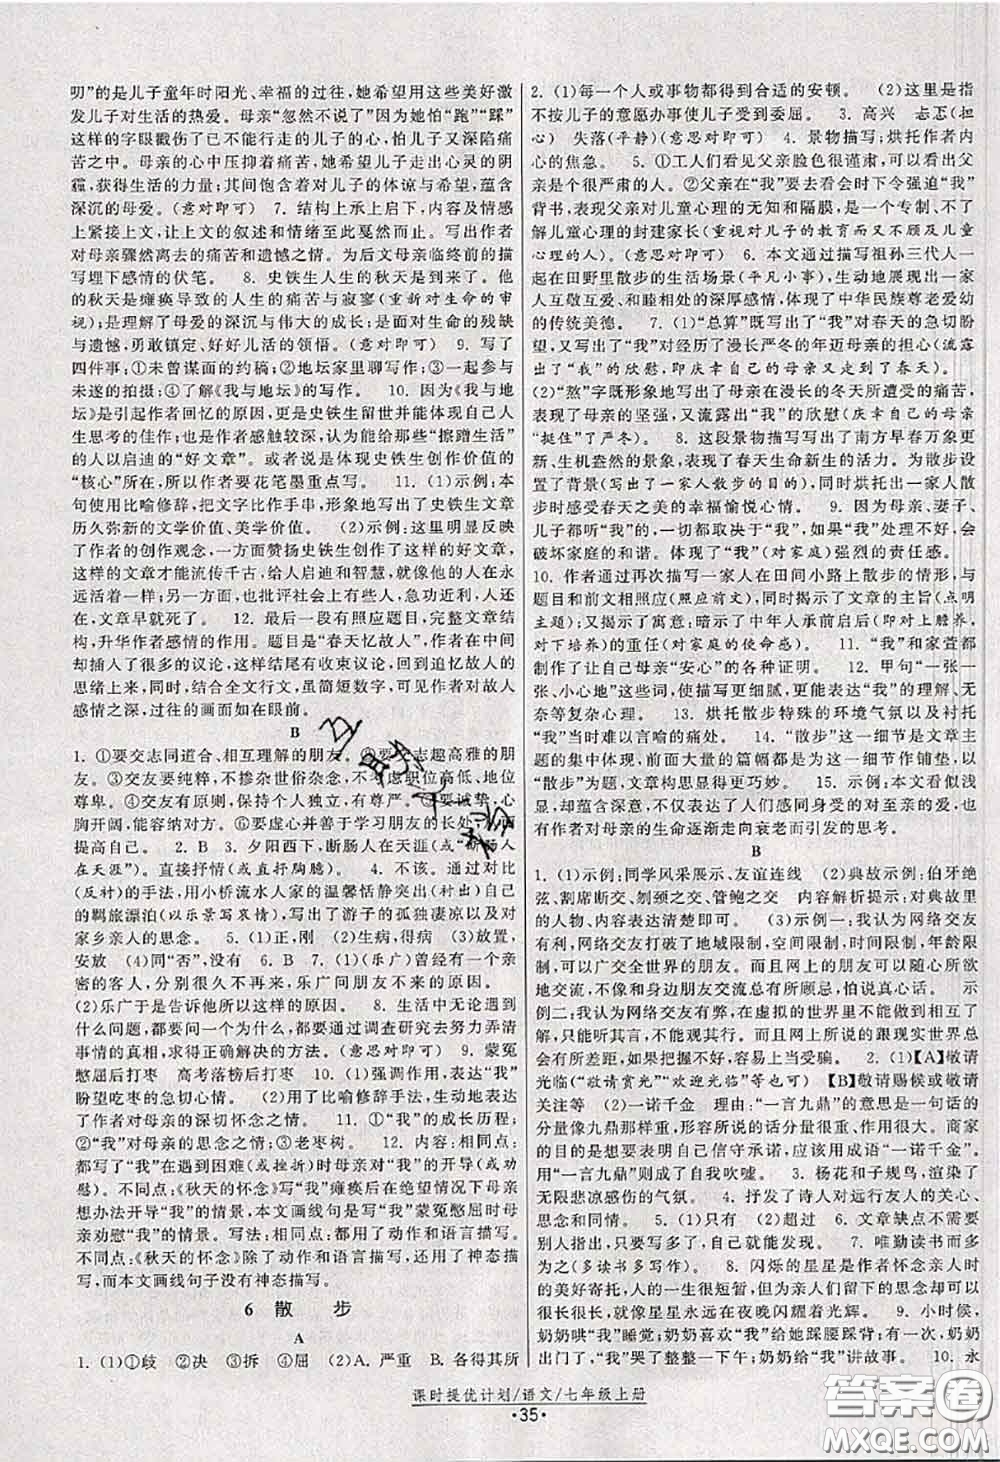 叨”的是儿子童年时阳光、幸福的过往,她希望用这些美好激
发儿子对生活的热爱。母亲“忽然不说了”是因为她怕“跑”“踩”
这样的字眼戳伤了已不能行走的儿子的心,怕儿子又深陷痛
苦之中。母亲的心中压抑着痛苦,她希望儿子走出心灵的阴
霾,获得生活的力量;其中有着对儿子的体谅与希望,蕴含
深沉的母爱。(意对即可) 7. 结构上承上启下,内容及情感
上紧接上文,让上文的叙述和情绪至此戛然而止。写出作者
对母亲骤然离世的痛苦和遗憾之情。为后文母亲临终前的描
写埋下感情的伏笔。 8. 史铁生人生的秋天是到来了。他
的秋天是瘫痪导致的人生的痛苦与寂寥(积极理性生命的审
视);是理解了母爱的深沉与伟大的成长;是面对生命的残缺
与遗憾,勇敢镇定、好好儿活的领悟。(意对即可) 9. 写了
四件事:①未曾谋面的约稿;②地坛家里聊写作;③一起参与
未遂的拍摄;④了解《我与地坛》的写作。 10. 因为《我与地
坛》是引起作者回忆的原因,更是史铁生留世并能体现自己人
生思考的佳作;也是作者感触较深,认为能给那些“擦蹭生活”
的人以启迪的“好文章”。或者说是体现史铁生创作价值的
“核心”所在,所以作者要花笔墨重点写。 11. (1)示例:本
句使用比喻修辞,把文字比作手串,形象地写出了史铁生文章
历久弥新的文学价值、美学价值。 (2)示例:这里明显反映
了作者的创作观念,一方面赞扬史铁生创作了这样的好文章,
这样的文章才能流传千古,给人启迪和智慧,就像他的人一样
永远活着;另一方面,也批评社会上有些人,急功近利,人还
在,文章早就死了。 12. 最后一段有照应题目,完整文章结
构,升华作者感情的作用。题目是“春天忆故人”,作者在中间
却插入了很多的议论,这样结尾有收束议论,回到追忆故人的
思绪上来,同时,结合全文行文,虽简短数字,可见作者对故人
感情之深,过往的画面如在眼前。
B
1. ①要交志同道合、相互理解的朋友。②要交志趣高雅的朋
友。③交友要纯粹,不掺杂世俗杂念,不考虑职位高低、地位
尊卑。④交友有原则,保持个人独立,有尊严。⑤要诚挚,心
胸开阔,能容纳对方。⑥要虚心并善于学习朋友的长处,巩固
提高自己。 2. B 3. 夕阳西下,断肠人在天涯(或断肠人
在天涯)。直接抒情(或直抒胸臆) 4. 不该。通过对比
(反衬)的手法,用小桥流水人家的温馨恬静突出(衬出)自己
的羁旅漂泊(以乐景写哀情),写出了游子的孤独凄凉以及对
家乡亲人的思念。 5. (1)正,刚 (2)生病,得病 (3)放置,
安放 (4)同“否”,没有 6. B 7. (1)(乐广)曾经有一个亲
密的客人,分别很久不再来,乐广问朋友不再来的原因。
(2)乐广于是告诉他所以这样的原因。 8. 生活中无论遇到
什么问题,都要通过调查研究去努力弄清
事情的真相,求得正确解决的方法。(意思对即可) 9. 蒙冤
憋屈后打枣 高考落榜后打枣 10. (1)强调作用,表现“我”
盼望吃枣的急切心情。 (2)用了比喻修辞手法,生动地表达
了作者对母亲的深切怀念之情。 11. ①“我”的成长历程;
②“我”对母亲的思念之情;③老枣树。 12. 内容:相同点:
都描写了“我”在遇到困难(或挫折)时母亲对“我”的鼓励。
不同点:《秋天的怀念》写“我”瘫痪后在绝望情况下母亲
想办法开导“我”的情景,本文画线句是写“我”蒙冤憋屈时母
亲劝慰“我”的情景。写法:相同点:都有动作和语言描写。
不同点:《秋天的怀念》除了动作和语言描写外,还有神态描
写,而本文画线句子没有神态描写。
6 散 步
A
1. (1)①歧 ②决 ③拆 ④屈 (2)A. 严重 B. 各得其所
2. (1)每一个人或事物都得到合适的安顿。 (2)这里是指
不按儿子的意愿办事使儿子受到委屈。 3. 高兴 忐忑(担
心) 失落(平静)(意思对即可) 4. 景物描写;烘托作者内
心的焦急。 5. ①工人们看见父亲脸色很谨肃,可以看出父
亲是个很严肃的人。②父亲在“我”要去看会时下令强迫“我”
背书,表现父亲对儿童心理的无知和隔膜,是一个专制、不了
解儿童心理的封建家长(重视对儿女的教育而又不顾及儿童
心理的父亲)(意对即可) 6. 本文通过描写祖孙三代人一
起在田野里散步的生活场景(平凡小事),生动地展现了一家
人互敬互爱、和睦相处的深厚感情,体现了中华民族尊老爱幼
的传统美德。 7. (1)“总算”既写出了“我”对春天的急切盼
望,又写出了“我”对经历了漫长严冬的年迈母亲的关心(流露
出了“我”的欣慰,即庆幸自己的母亲又走到了春天)。
(2)“熬”字既形象地写出了母亲在漫长的冬天所遭受的痛苦,
表现了母亲的坚强,又流露出“我”的欣慰(庆幸自己的母亲
“挺住”了严冬)。 8. 这段景物描写写出了南方早春万象更
新、生机盎然的景象,表现了春天生命新生的活力。为散步设
置了背景(写出了一家人散步的目的),同时烘托出一家人散
步时感受春天之美的幸福愉悦心情。 9. 因为母亲、妻子、
儿子都听“我”的,一切都取决于“我”,如果“我”处理不好,会
破坏家庭的和谐。体现了“我”(对家庭)强烈的责任感。
10. 作者通过再次描写一家人在田间小路上散步的情形,与
题目和前文相照应(照应前文),同时揭示了文章的主旨(点明
主题);又以形象的寓言,暗示了中年人承前启后(对上赡养,
对下培养)的重任(对家庭的使命感)。 11. “我”和家萱都
制作了让自己母亲“安心”的各种证明。 12. 甲句“一张一
张、小心地”这些词,使描写更细腻,更能表达“我”的理解、无
奈等复杂心理。 13. 烘托散步特殊的环境气氛以及衬托
“我”当时难言的痛处。 14. “散步”这一细节是文章主题
的集中体现,前面大量的篇幅都可以为这一细节作铺垫,以
“散步”为题,文章构思显得更巧妙。 15. 示例:本文看似浅
显,却蕴含深意,不仅表达了人们感同身受的对至亲的爱,也
有作者对母亲的生命逐渐走向衰老而引发的思考。
B
1. (1)示例:同学风采展示、友谊连线 (2)典故示例:伯牙绝
弦、割席断交、刎颈之交、管鲍之交 内容解析提示:对典故里
的人物、内容表达清楚即可。 (3)示例一:我认为网络交友
有利,网络交友打破了地域限制,空间限制,时间限制,年龄限
制,可以广交全世界的朋友。而且网上的朋友可以随心所欲
地交流,不像和身边朋友交流有所顾忌,怕说真心话。 示
例二:我认为网络交友有弊,在虚拟的世界里不了解对方,
只能听其言,不能观其行。而且网上所说的跟现实世界总会
有所差距,如果把握不好,容易上当受骗。 2. (1)【A】敬请
光临(“敬请赏光”“欢迎光临”等也可) 【B】敬请赐候或敬请
关注等 (2)一诺千金 理由:“一言九鼎”的意思是一句话的
分量像九鼎那样重,形容所说的话分量很重、作用很大。商家
是为了表明自己信守承诺,应该用成语“一诺千金”。
用“一言九鼎”则成了自我吹嘘。 3. 杨花和子规鸟,渲染了
无限悲凉感伤的气氛。 4. 抒发了诗人对远行友人的关心、
思念和同情。 5. (1)只有 (2)超过 6. 文章缺点不需要
别人指出,自己多写作就能发现。(意对即可) 7. 唯勤读书
而多为之(多读书多写作)。 8. 闪烁的星星是作者怀念亲人时
的美好寄托,人的一生很短暂,但亲人们留下的思念却
很永恒,就像星星永远在夜晚闪耀着光辉。 9. 小时候,
奶奶哄“我”睡觉;奶奶喜欢“我”给她踩腰踩背;有一次,奶奶
出门了,“我”哭了整整一下午;奶奶给“我”讲故事。 10. 永
课时提优计划/语文/七年级上册
·35·
答案圈
MXQE.COM